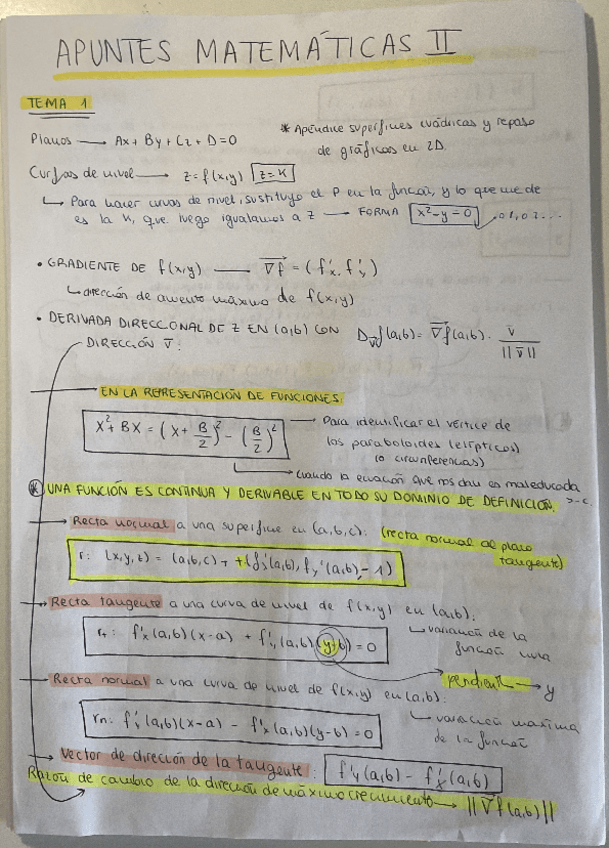 APUNTES MATEMÁTICAS II
TEMA 1
Planos → Ax + By + Cz + D = 0
* Apéndice superficies cuádricas y repaso
de gráficas en 2D.
Curvas de nivel → z = f(x,y) z = K
↳ Para hacer curvas de nivel, sustituyo el P en la función, y lo que me de
es la K, que luego igualamos a z → FORMA x² - y = 0
• GRADIENTE DE f(x,y) → ∇f = (f'x, f'y)
↳ dirección de aumento máximo de f(x,y)
• DERIVADA DIRECCIONAL DE Z EN (a,b) CON
DIRECCIÓN v̄:
D_v̄ f(a,b) = ∇f(a,b) · v̄ / ||v̄||
EN LA REPRESENTACIÓN DE FUNCIONES
X² + BX = (X + B/2)² - (B/2)²
→ Para identificar el vértice de
los paraboloides (elípticos)
(o circunferencias)
↳ cuando la ecuación que nos dan es maleducada
* UNA FUNCIÓN ES CONTINUA Y DERIVABLE EN TODO SU DOMINIO DE DEFINICIÓN.
→ Recta normal a una superficie en (a,b,c): (recta normal al plano
tangente)
r: (x,y,z) = (a,b,c) + t(f'x(a,b), f'y(a,b), -1)
→ Recta tangente a una curva de nivel de f(x,y) en (a,b):
rt: f'x(a,b)(x-a) + f'y(a,b)(y-b) = 0
↳ variación de la
función nula
pendiente → y
→ Recta normal a una curva de nivel de f(x,y) en (a,b):
rn: f'y(a,b)(x-a) - f'x(a,b)(y-b) = 0
↳ variación máxima
de la función
→ Vector de dirección de la tangente: f'y(a,b) - f'x(a,b)
Razón de cambio de la dirección de máximo crecimiento → ||∇f(a,b)||